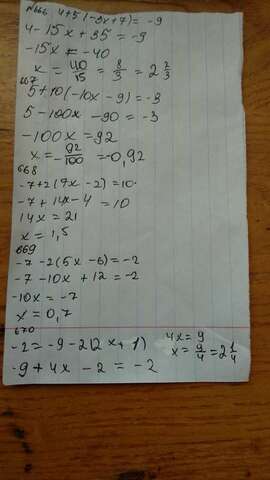 №666 4+5(-3x+7)= -9
4-15x+35=-9
-15x = -40
x = 40/15 = 8/3 = 2 2/3
667
5+10(-10x-9)=-3
5-100x-90=-3
-100x=92
x=-92/100=-0,92
668
-7+2(7x-2)=10
-7+14x-4=10
14x=21
x=1,5
669
-7-2(5x-6)=-2
-7-10x+12=-2
-10x=-7
x=0,7
670
-2=-9-2(2x+1)
-9+4x-2=-2
4x=9
x=9/4=2 1/4